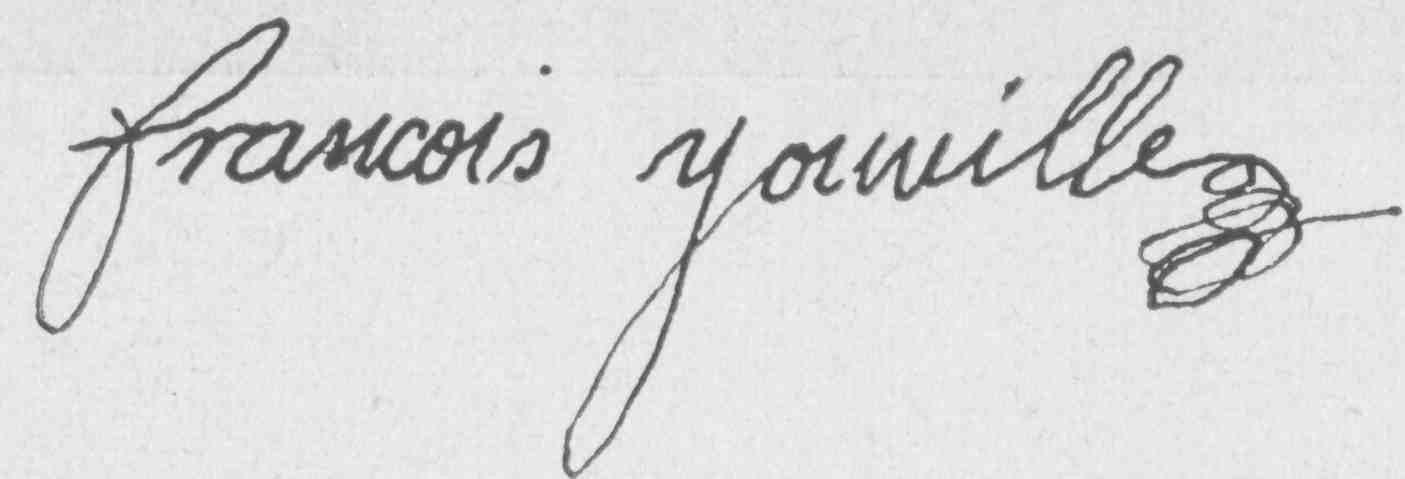 francois youville